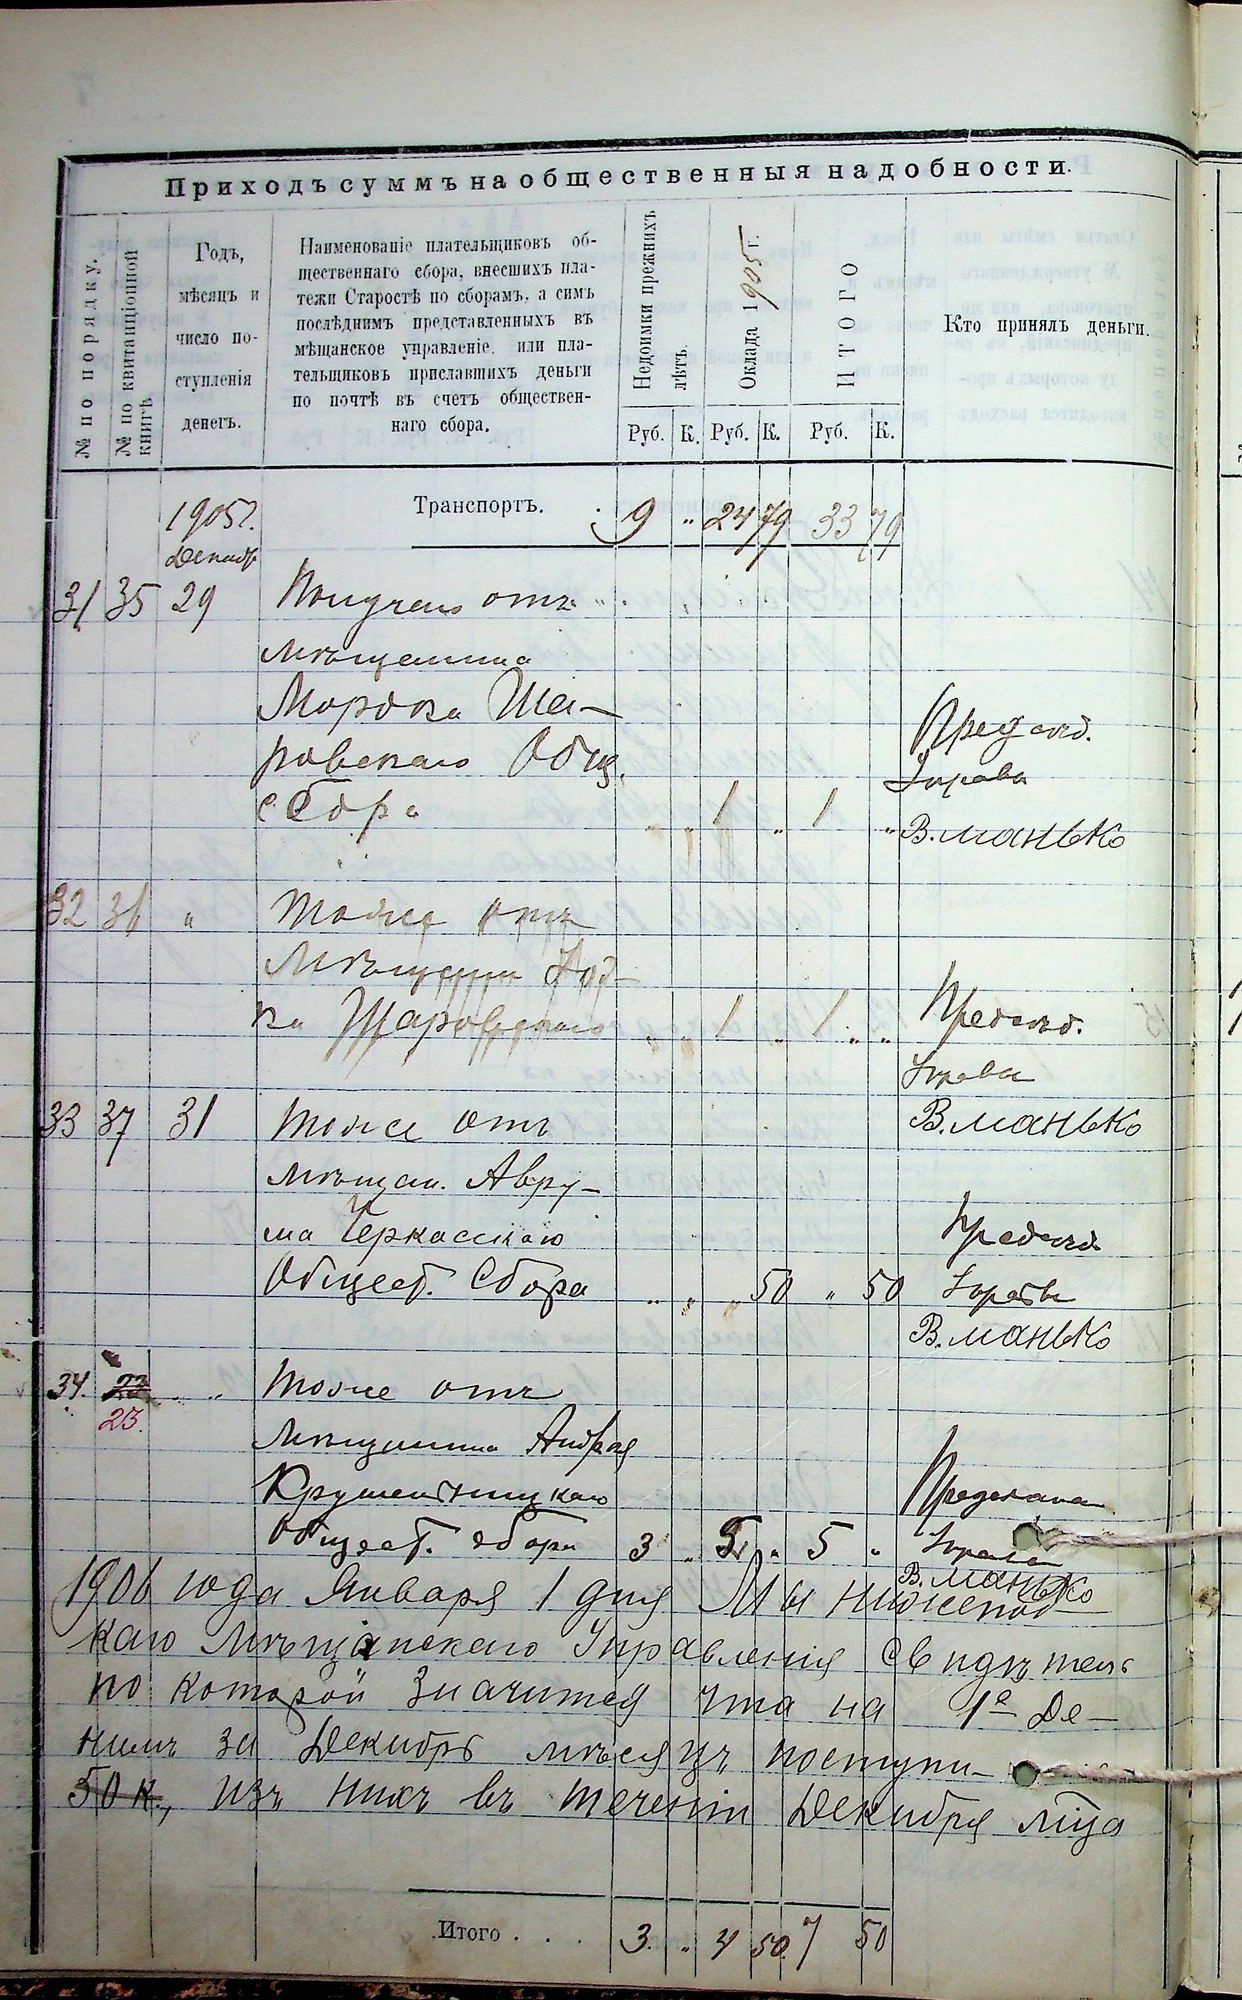 Приходъ суммъ на общественныя надобности.
№ по порядку.
№ по квитанціонной
книгѣ
Годъ,
мѣсяцъ и
число по-
ступленія
денегъ.
Наименованіе плательщиковъ об-
щественнаго сбора, внесшихъ пла-
тежи Старостѣ по сборамъ, а симъ
послѣднимъ представленныхъ въ
мѣщанское управленіе, или пла-
тельщиковъ приславшихъ деньги
по почтѣ въ счетъ обществен-
наго сбора.
Недоимки прежнихъ
лѣтъ.
Оклада 1905 г.
ИТОГО
Кто принялъ деньги.
Руб. К. Руб. К. Руб. К.
1905 г. Транспортъ. 9 " 24 79 33 79
Декабр
31 35 29 Получено отъ
мѣщанина
Мордка Ша-
ровскаго Общ.
сбора " " 1 " 1 "
Предсѣд.
Управы
В. Манько
32 36 " Тоже отъ
Мѣщанина
ка Шаровскаго " " 1 " 1 " "
Предсѣд.
Управы
В. Манько
33 37 31 Тоже отъ
мѣщан. Авру-
ма Черкасскаго
Общест. Сбора " " " 50 " 50
Предсѣд
Управы
В. Манько
34. 23 " " Тоже отъ
23.
Мѣщанина Андрея
Общест. сбора 3 " " 5 "
Управы
В. Манько
1906 года Января 1 дня Мы нижепод-
каго Мѣщанскаго Управленія свидѣтель
по которой значится что на 1е Де-
нимъ за Декабрь мѣсяцъ поступи-
50 к., изъ нихъ въ теченіи Декабря мца
Итого . . . 3. " 4 50. 7 50